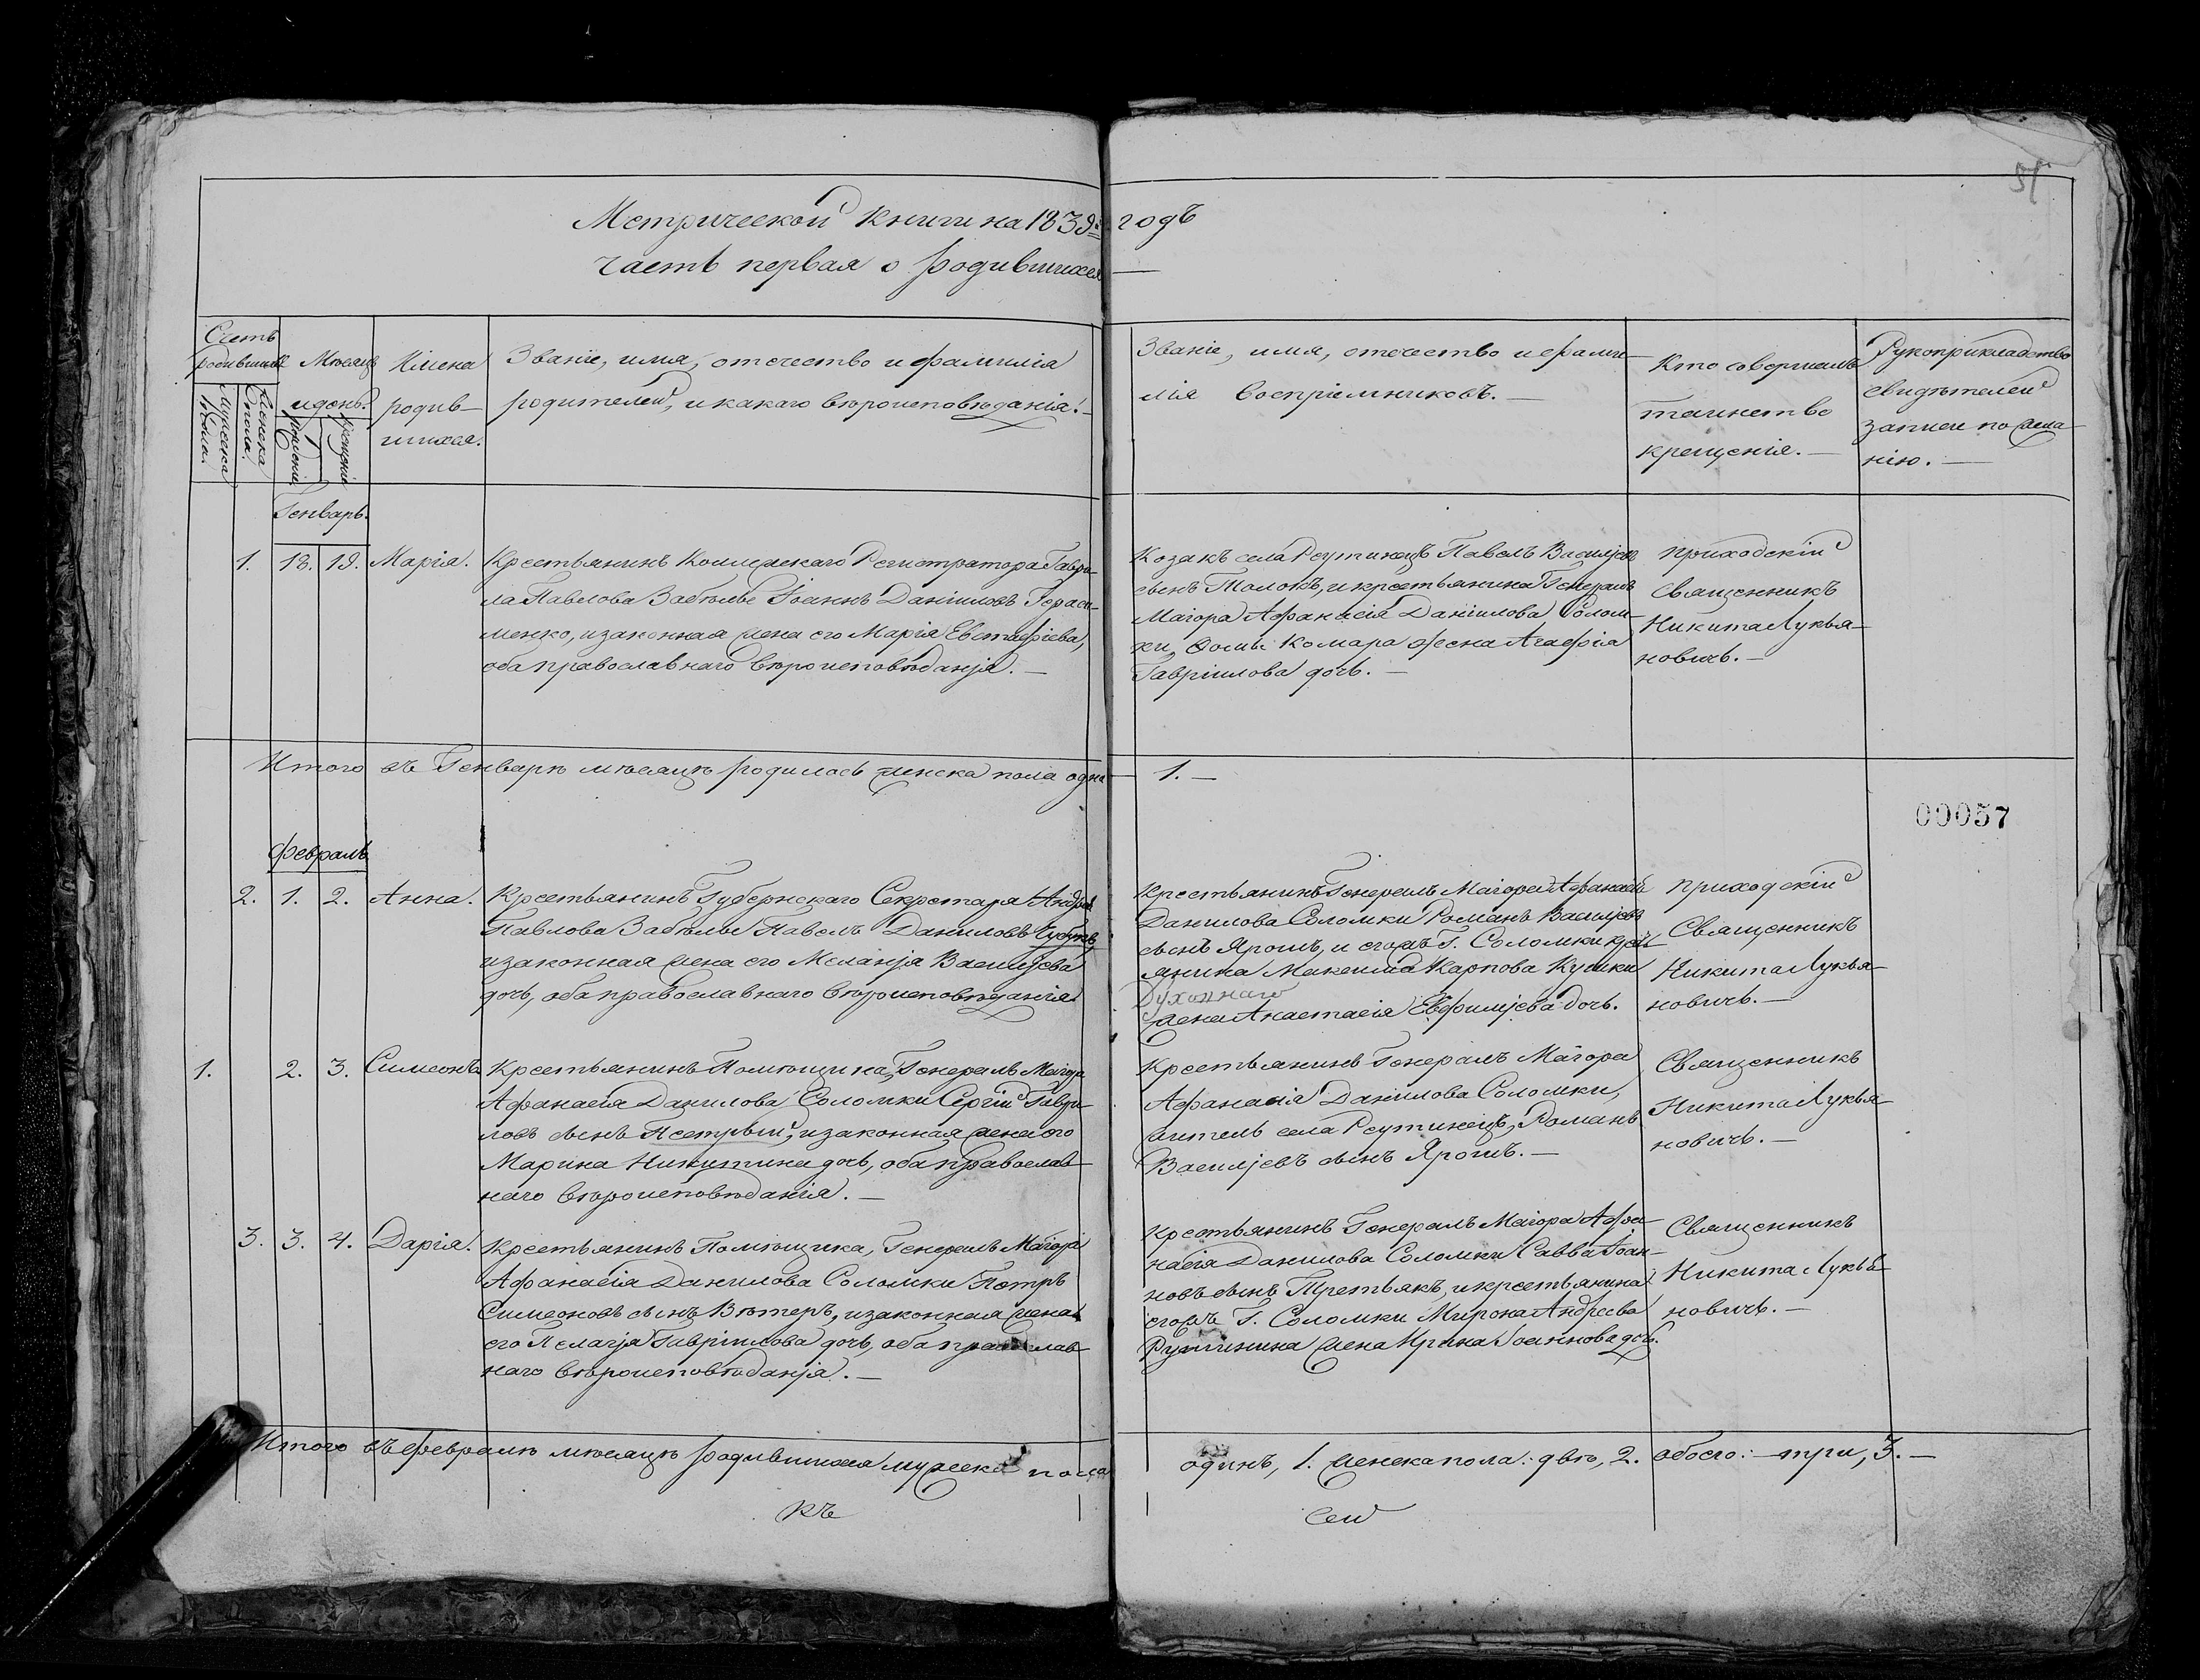 57
Метрической книги на 1839й годъ
часть первая о родившихся —
Счетъ родившихся
Мужеска пола.
Женска пола.
Месяцъ и день.
рожденія
крещенія
Имена родив-
шихся.
Званіе, имя, отечество и фамилія
родителей, и какаго вѣроисповѣданія. —
Званіе, имя, отечество и фами-
лія Воспріемниковъ. —
Кто совершалъ
таинство
крещенія. —
Рукоприкладство
свидѣтелей
записи по жела-
нію. —
Генварь.
1. 18. 19. Марія.
Крестьянинъ Коллежскаго Регистратора Гаври-
ла Павлова Забѣлы Іоаннъ Даніиловъ Гераси-
менко, и законная жена его Марія Евстафіева,
оба православнаго вѣроисповѣданія. —
Козакъ села Реутинецъ Павелъ Василіевъ
сынъ Толокъ, и крестьянина Генералъ
Маіора Афанасія Даніилова Солом-
ки, Фомы Комара жена Агафія
Гавріилова дочь. —
приходскій
Священникъ
Никита Лукья-
новичъ. —
Итого въ Генварѣ мѣсяцѣ родилось женска пола одна — 1. —
00057
Февраль
2. 1. 2. Анна.
Крестьянинъ Губернскаго Секретаря Андрея
Павлова Забѣлы Павелъ Даниловъ Чубунъ,
и законная жена его Меланія Василіева
дочь, оба православнаго вѣроисповѣданія.
Крестьянинъ Генералъ Маіора Афанасія
Данилова Соломки Романъ Василіевъ
сынъ Ярошъ, и тогожъ Г. Соломки крест-
янина Максима Карпова Кушки
Духоннаго
жена Анастасія Евфиміева дочь.
приходскій
Священникъ
Никита Лукья-
новичъ. —
1. 2. 3. Симеонъ
Крестьянинъ Помѣщика, Генералъ Маіора
Афанасія Данилова Соломки Сергій Гаври-
ловъ сынъ Псетрый, и законная жена его
Марина Никитина дочь, оба православ-
наго вѣроисповѣданія. —
Крестьянинъ Генералъ Маіора
Афанасія Даніилова Соломки,
житель села Реутинецъ, Романъ
Василіевъ сынъ Ярошъ. —
Священникъ
Никита Лукья-
новичъ. —
3. 3. 4. Дарія.
Крестьянинъ Помѣщика, Генералъ Маіора
Афанасія Данилова Соломки Петръ
Симеоновъ сынъ Вѣтеръ, и законная жена
его Пелагія Гавріилова дочь, оба православ-
наго вѣроисповѣданія. —
Крестьянинъ Генералъ Маіора Афа-
насія Данилова Соломки Савва Іоан-
новъ сынъ Третьякъ, и крестьянина
тогожъ Г. Соломки Мирона Андреева
жена Ирина Іоаннова дочь.
Священникъ
Никита Лукья-
новичъ. —
Итого въ Февралѣ мѣсяцѣ родившихся мужеска пола одинъ, 1. женска пола: двѣ, 2. обоего: — три, 3. —